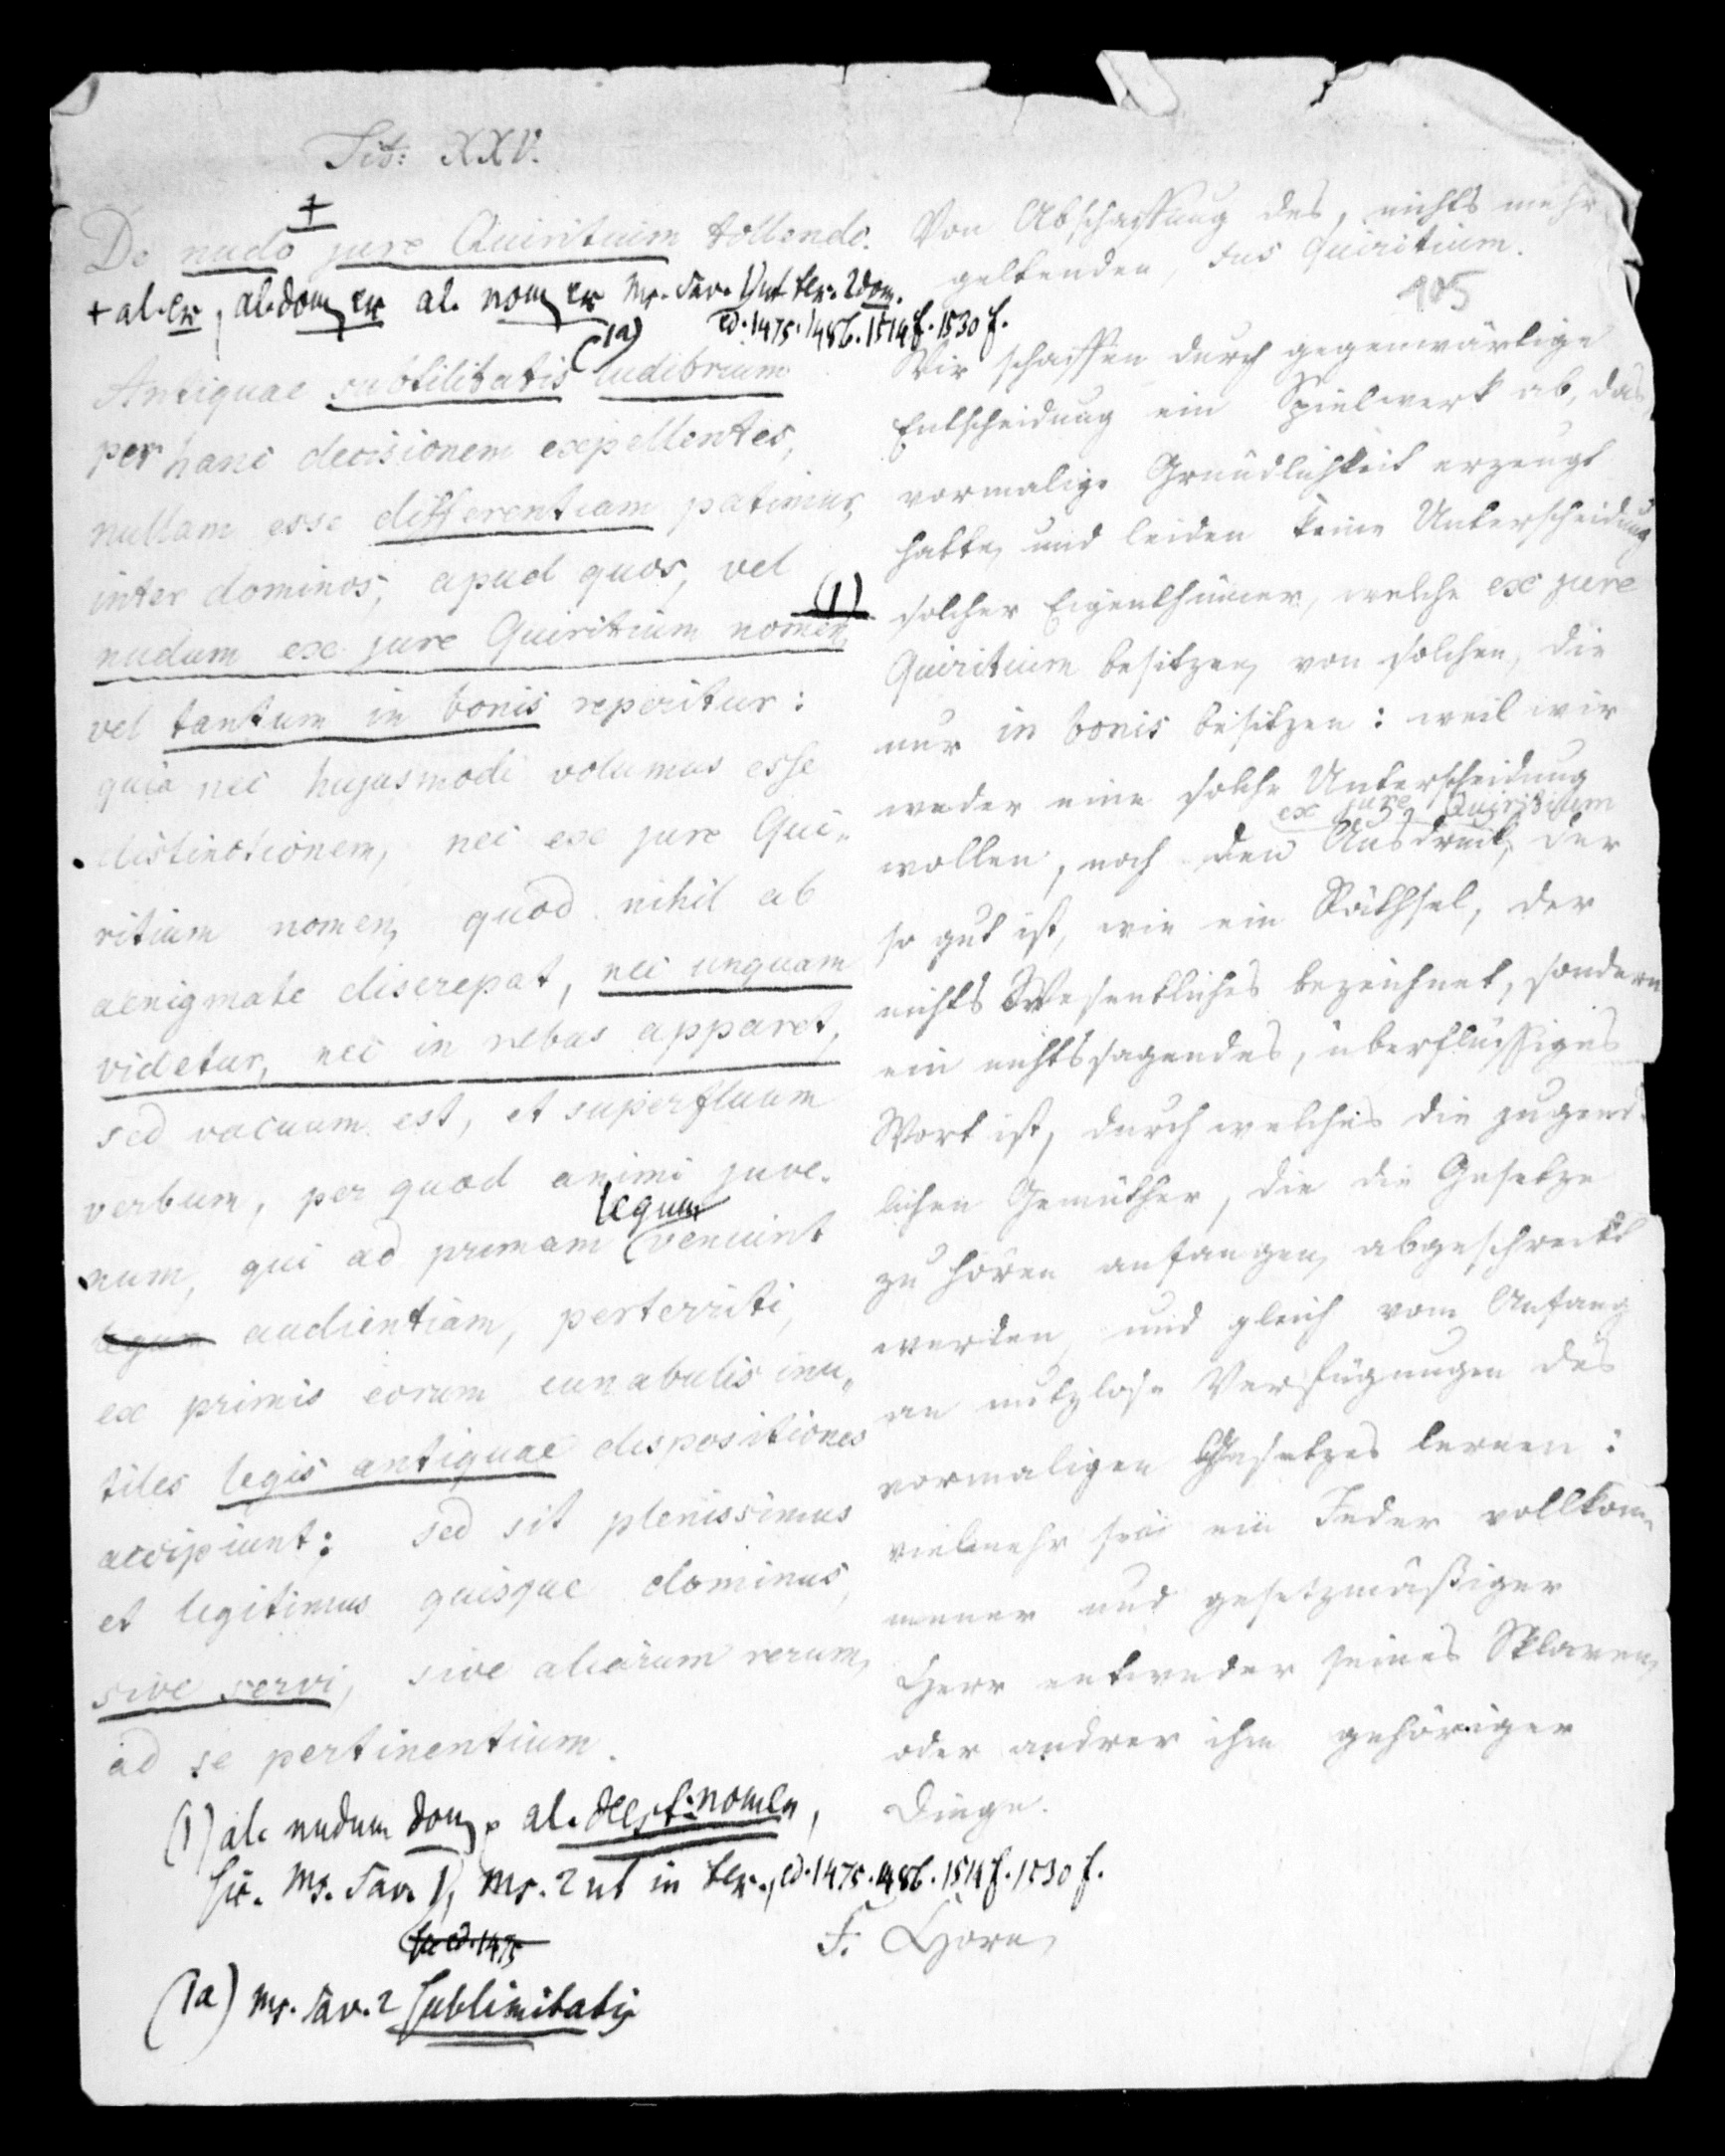 Tit: XXV.
+
De nudo jure Quiritium tollendo.
+ al. ex, al. dom. ex al. nom. ex Ms. Sav. 1, ut ter. 2 dom.
ed. 1475. 1486. 1514 f. 1530 f.
(1a)
Antiquae subtilitatis ludibrium
per hanc decisionem expellentes,
nullam esse differentiam patimur,
inter dominos, apud quos, vel
(1)
nudum ex jure Quiritium nomen,
vel tantum in bonis reperitur:
quia nec hujusmodi volumus esse
distinctionem, nec ex jure Qui-
ritium nomen, quod nihil ab
aenigmate discrepat, nec unquam
videtur, nec in rebus apparet,
sed vacuum est, et superfluum
verbum, per quod animi juve-
legum
num, qui ad primam veniunt
legum audientiam, perterriti,
ex primis eorum cunabulis inu-
tiles legis antiquae dispositiones
accipiunt: sed sit plenissimus
et legitimus quisque dominus,
sive servi, sive aliarum rerum,
ad se pertinentium.
(1) al. nudum dom. al. deest nomen,
sic. Ms. Sav. 1, Ms. 2 ut in ter., ed. 1475. 1486. 1514 f. 1530 f.
sic ed. 1475
(1a) Ms. Sav. 2 sublimitatis
Von Abschaffung des, nichts mehr
geltenden, Jus Quiritium.
105
Wir schaffen durch gegenwärtige
Entscheidung ein Spielwerk ab, das
vormalige Gründlichkeit erzeugt
hatte, und leiden keine Unterscheidung
solcher Eigenthümer, welche ex jure
Quiritium besitzen, von solchen, die
nur in bonis besitzen: weil wir
weder eine solche Unterscheidung
ex jure Quiritium
wollen, noch den Ausdruck, der
so gut ist, wie ein Räthsel, der
nichts Wesentliches bezeichnet, sondern
ein nichtssagendes, überflüssiges
Wort ist, durch welches die jugend-
lichen Gemüther, die die Gesetze
zu hören anfangen, abgeschreckt
werden, und gleich vom Anfang
an nutzlose Verfügungen des
vormaligen Gesetzes lernen:
vielmehr sei ein Jeder vollkom-
mener und gesetzmäßiger
Herr entweder seines Sklaven,
oder andrer ihm gehöriger
Dinge.
F. Horn